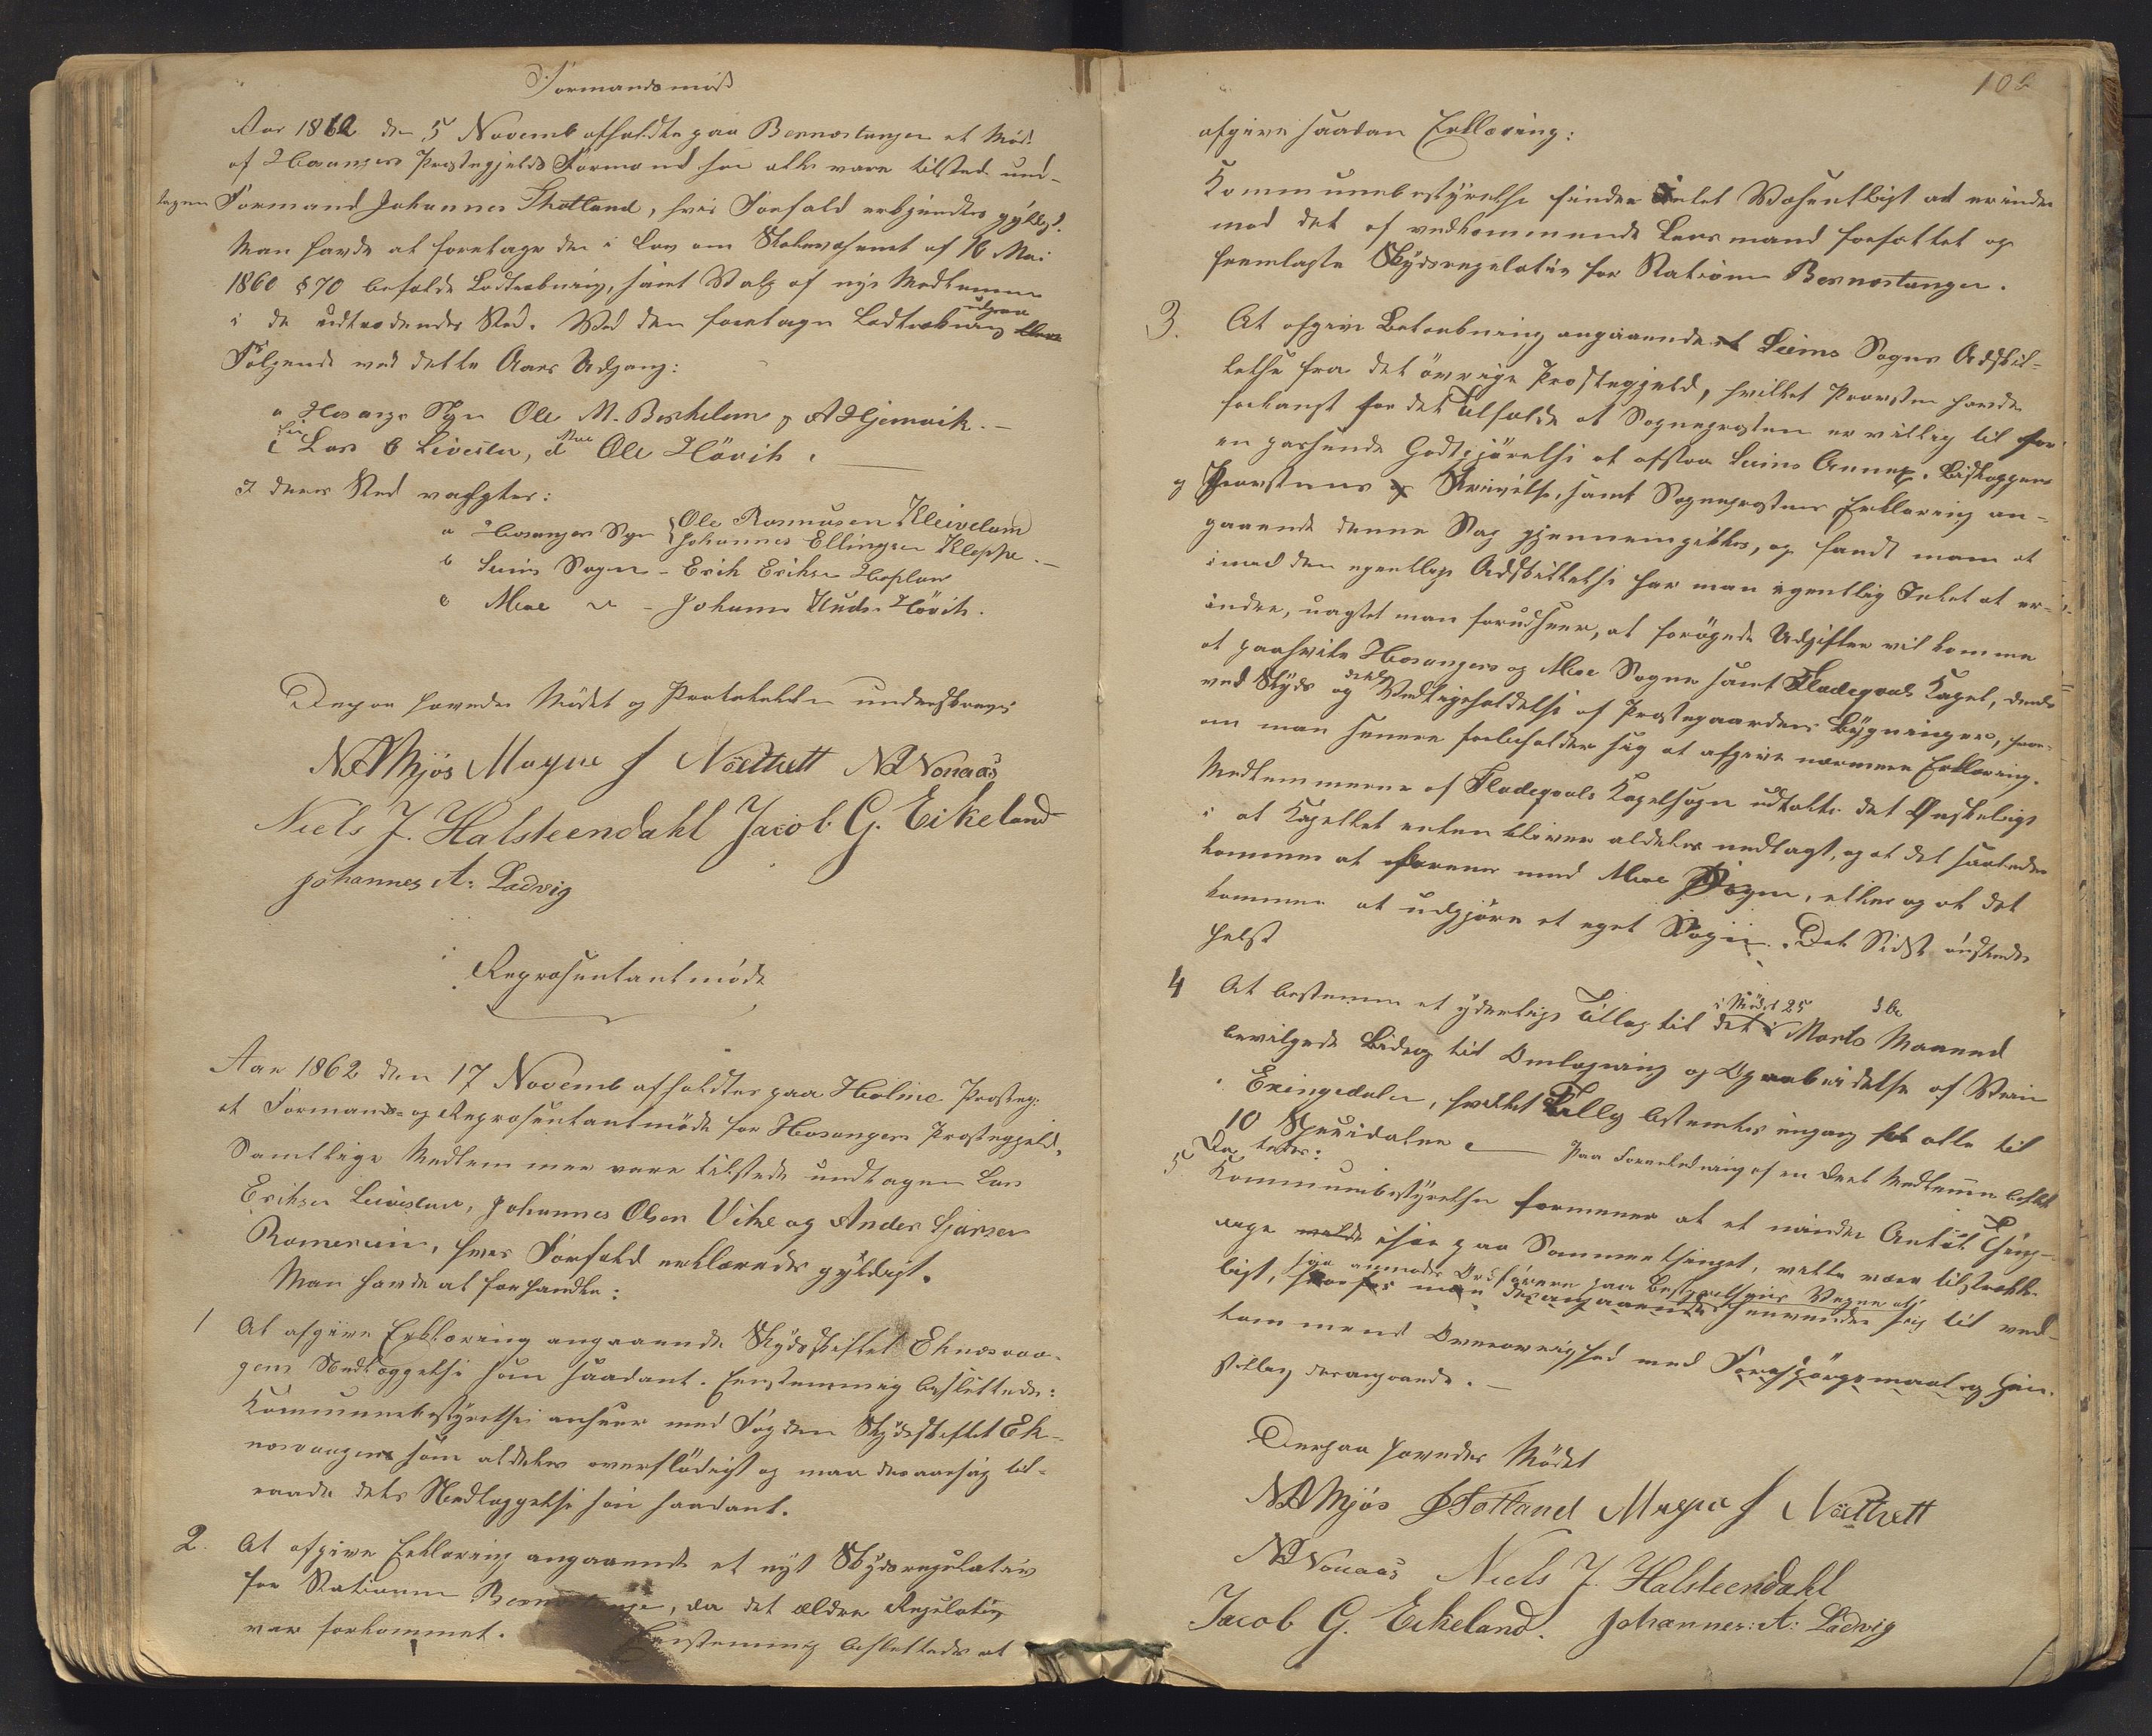 Formandsmöde
Aar 1862 den 5 Novemb afholdtes paa Bernestangen et Möde
af Hosangers Præstegjelds Formænd hvor alle vare tilstede und-
tagen Formand Johannes Skotland, hvis Forfald erkjendtes gyldigt.
Man havde at foretage den i Lov om Skolevæsenet af 16 Mai
1860 § 70 befalede Lodtrækning, samt Valg af nye Medlemmer
i de udtrædendes Sted. Ved den foretagne Lodtrækning udgaa
Følgende ved dette Aars Udgang:
a Hosanger Sogn Ole M. Birkelun & A Hjemvik. -
Lars E Leivesten, Moe Ole Hövik.
I deres Sted valgtes:
a Hosangers Sogn Ole Rasmusen Kleiveland
Johannes Ellingsen Kleppe. -
b Seims Sogn - Erik Eriksen Hopland
c Moe - Johannes Knuds. Hövik.
Derpaa hævedes Mödet og Protokollen underskreves
N A Mjös Magne J Nöttvett N N Vonaas
Niels J. Halsteendahl Jacob G. Eikeland
Johannes A: Ladvig
Repræsentantmöde
Aar 1862 den 17 Novemb afholdtes paa Holme Præsteg:
et Formands- og Repræsentantmöde for Hosangers Præstegjeld,
Samtlige Medlemmer vare tilstede undtagen Lars
Eriksen Leivestad, Johannes Olsen Vike og Anders Hjarsen
Romereim, hvis Forfald erklæredes gyldigt.
Man havde at forhandle:
1 At afgive Erklæring angaaende Skydsskiftet Eknesvaa-
gens Nedlæggelse som saadant. Eenstemmig besluttedes:
Kommunebestyrelsen anseer med Fogden Skydsskiftet Ek-
nesvaagen som aldeles overflödigt og maa desaarsag til-
raade dets Nedlæggelse som saadant.
2. At afgive Erklæring angaaende et nyt Skydsregulativ
for Stationen Bernestangen, da det ældre Regulativ
var forkommet. Eenstemmig besluttedes at
102
afgive saadan Erklæring:
Kommunebestyrelsen finder intet Væsentligt at erindre
mod det af vedkommende Lensmand forfattet og
fremlagte Skydsregulativ for Stationen Bernestangen.
3. At afgive Betænkning angaaende Seims Sogns Adskil-
lelse fra det övrige Præstegjeld, hvilket Provsten havde
forlangt for det Tilfælde at Sognepræsten er villig til for
en passende Godtgjörelse at afstaa Seims Annex. Biskoppens
og Provstens Skrivelse, samt Sognepræstens Erklæring an-
gaaende denne Sag gjennemgikkes, og fandt man at
imod den egentlige Adskillelse har man egentlig Intet at er-
indre, uagtet man forudseer, at forögede Udgifter vil komme
at paahvile Hosangers og Moe Sogne samt Fladeqvals Kapel, deels
ved Skyds og deels Vedligeholdelse af Præstegaardens Bygninger, hvor-
om man senere forbeholder sig at afgive nærmere Erklæring.
Medlemmerne af Fladeqvals Kapelsogn udtalte det Ønskelige
i at Kapellet enten bliver aldeles nedlagt, og at det saaledes
kommer at forenes med Moe Sogn, eller og at det
kommer at udgjöre et eget Sogn. Det Sidste önskedes
helst
4 At bestemme et yderlige Tillæg til det i Mödet 25 Marts Maaned
bevilgede Bidrag til Omlægning og Oparbeidelse af Veien
i Exingedalen, hvilket Tillæg bestemtes engang for alle til
10 Speciedaler
5 Paa Foranledning af en Deel Medlemmer besluttedes:
Kommunebestyrelsen formener at et mindre Antal Thing-
dage især paa Sommerthinget, vilde være tilstrække-
ligt, saa anmodes Ordföreren paa Bestyrelsens Vegne at henvende sig til ved-
kommende Overøvrighed med Forespörgsmaal og Hen-
stilling desangaaende. -
Derpaa hævedes Mödet
N A Mjös J Skotland Magne J Nöttvett
N N Vonaas Niels J. Halsteendahl
Jacob G. Eikeland. Johannes: A: Ladvig